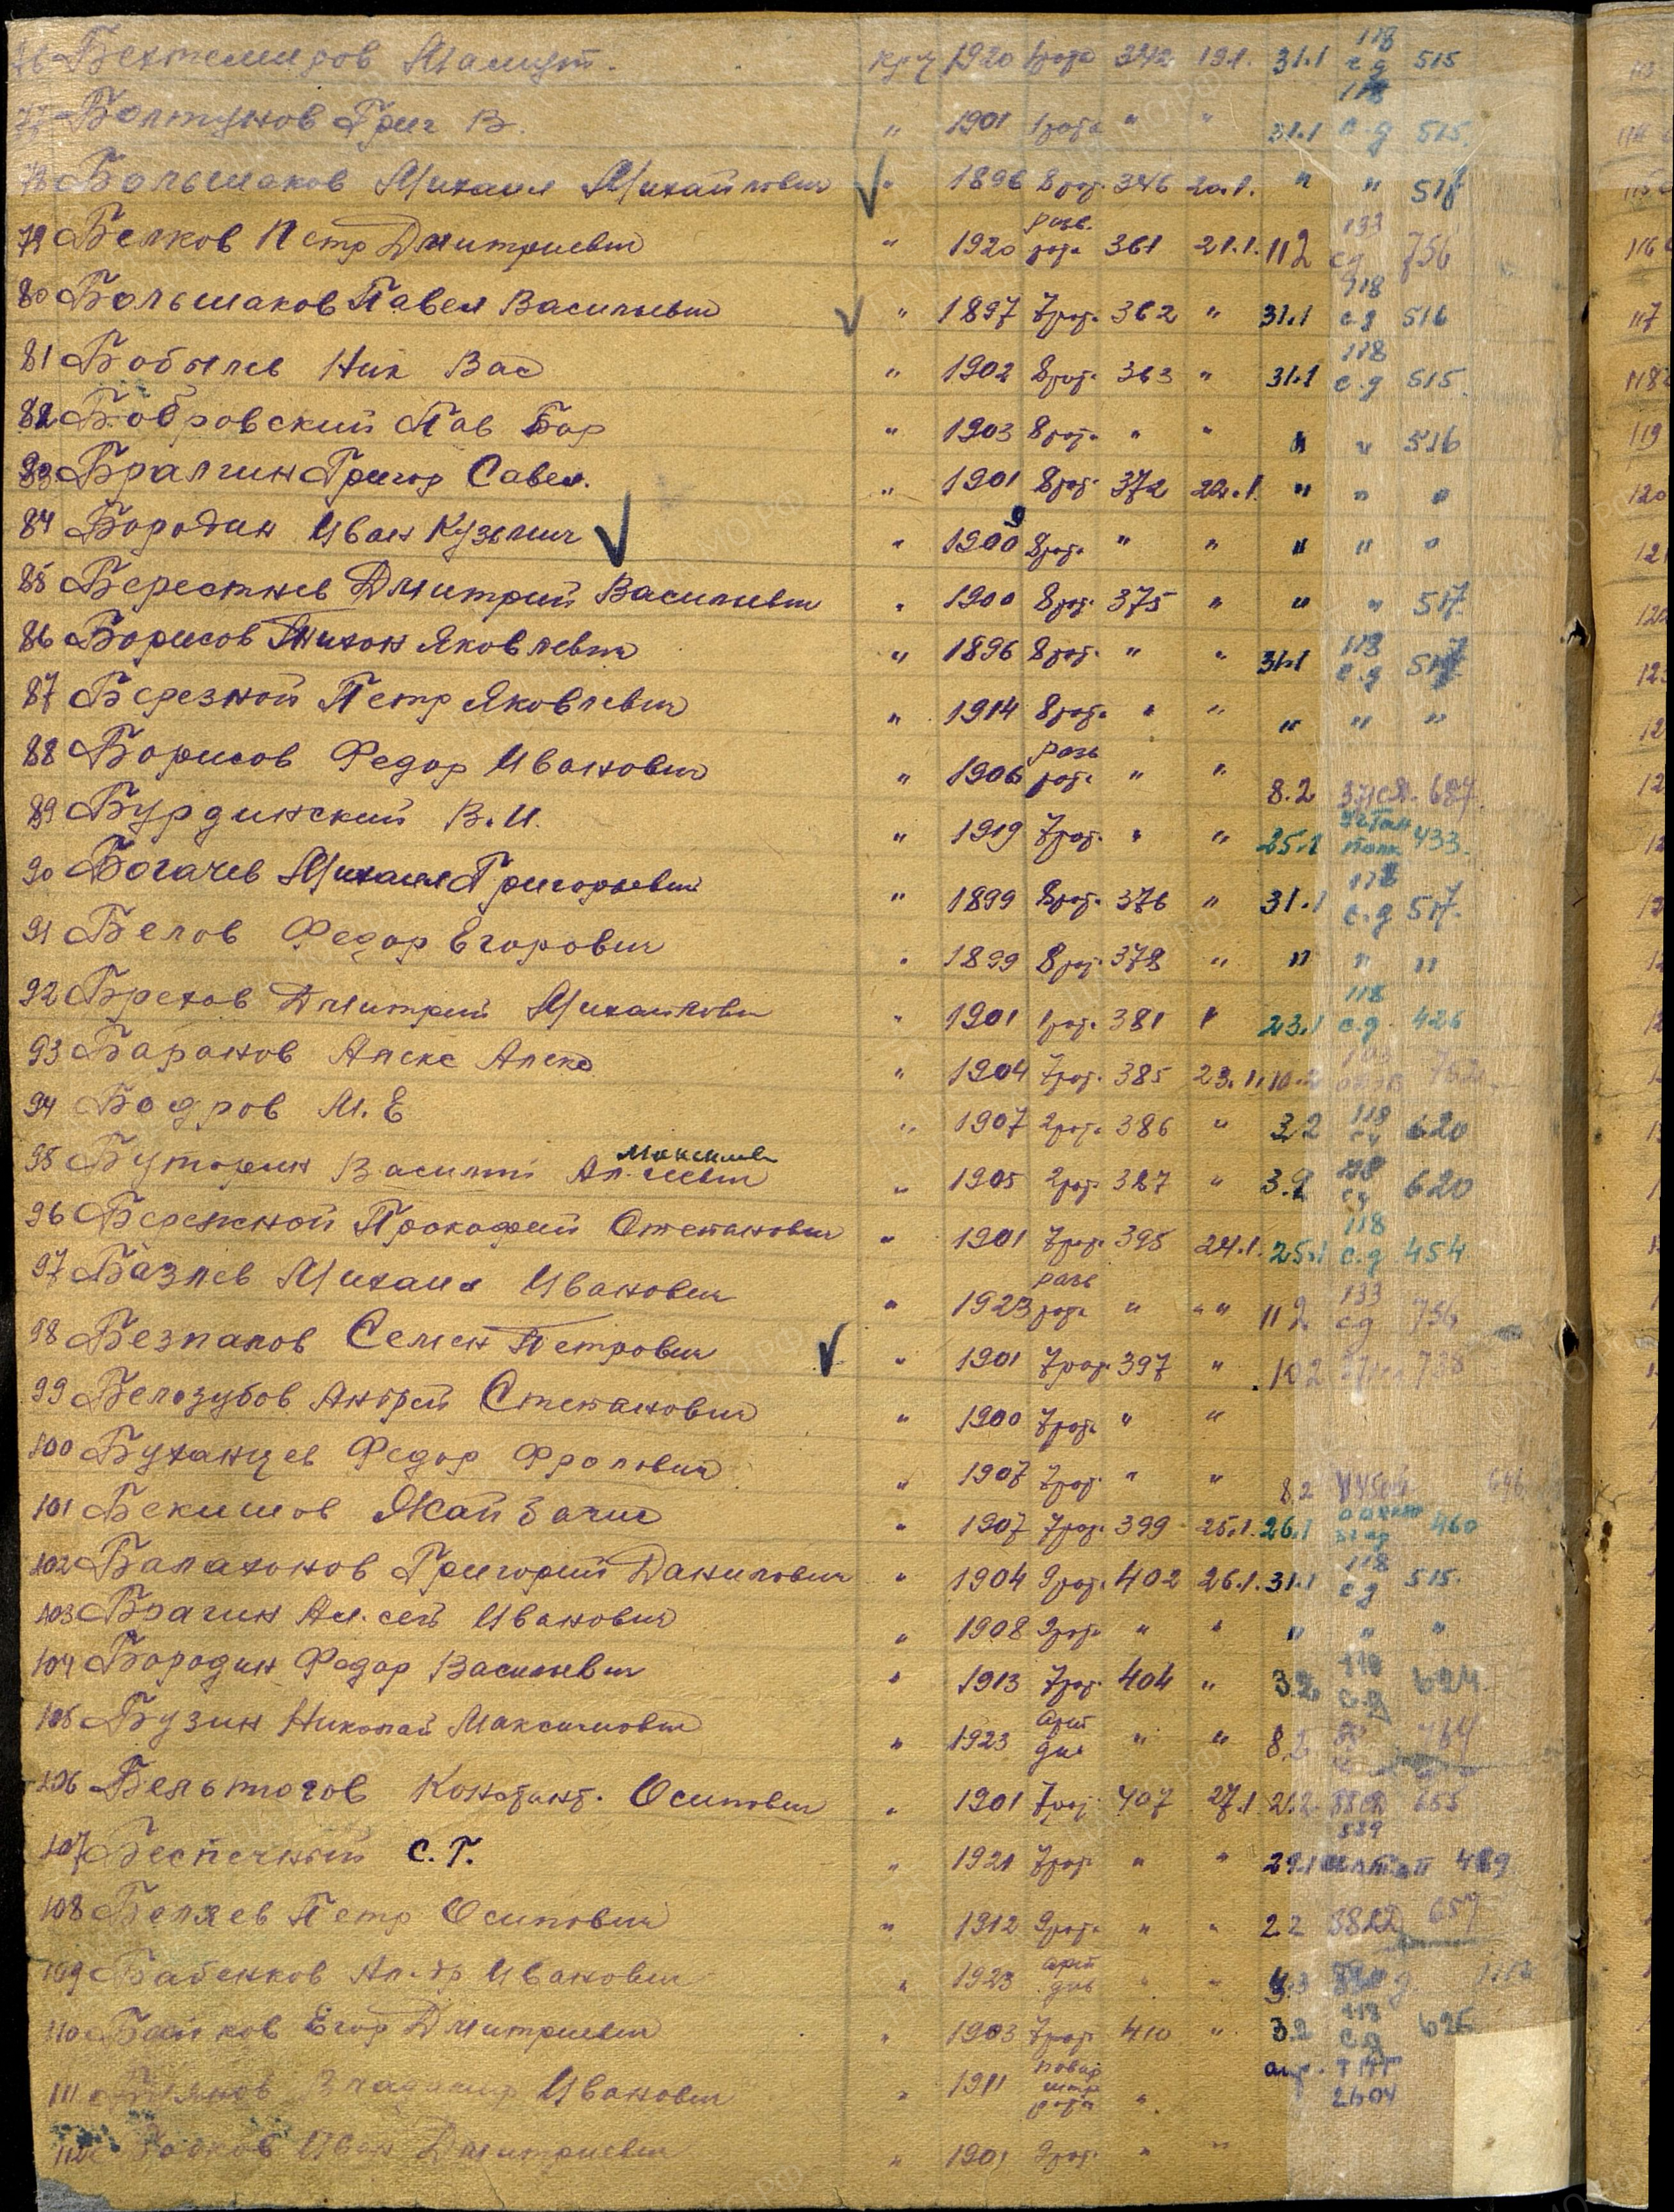 76 Бехтемиров Мамут. кр-ц 1920 1рота 342 19.1. 31.1 118 с.д 515
77 Болтунов Григ В. " 1901 1рота " " 31.1 118 с.д 515.
78 Большаков Михаил Михайлович " 1896 8рот. 346 20.1. " " 517
79 Белков Петр Дмитриевич " 1920 разв. рота 361 21.1. 11.2 133 сд 756
80 Большаков Павел Васильевич " 1897 7рот. 362 " 31.1 118 с.д 516
81 Бобылев Ник Вас " 1902 8рот. 363 " 31.1 118 с.д 515.
82 Бобровский Пав Бор " 1903 8рот. " " " " 516
83 Бралгин Григор Савел. " 1901 8рот. 372 22.1. " " "
84 Бородин Иван Кузьмич " 1900 9 8рот. " " " " "
85 Берестнев Дмитрий Васильевич " 1900 8рот. 375 " " " 517
86 Борисов Тихон Яковлевич " 1896 8рот. " " 31.1 118 с.д 517
87 Березной Петр Яковлевич " 1914 8рот. " " " " "
88 Борисов Федор Иванович " 1906 разв рота " " 8.2 687.
89 Бурдинский В.И. " 1919 7рот. " " 25.1 433.
90 Богачев Михаил Григорьевич " 1899 8рот. 376 " 31.1 118 с.д 517.
91 Белов Федор Егорович " 1899 8рот. 378 " " " "
92 Брехов Дмитрий Михайлович " 1901 1рот. 381 " 23.1 118 с.д. 426
93 Баранов Алекс Алекс " 1904 7рот. 385 23.1. 10.2
94 Бодров М.Е " 1907 2рота 386 " 3.2 118 сд 620
95 Буторин Василий Ал-еевич Максимов " 1905 2рот. 387 " 3.2 118 сд 620
96 Бережной Прокофий Степанович " 1901 7рот. 395 24.1. 25.1 118 с.д. 454
97 Базлев Михаил Иванович " 1923 разв рота " " " 11 2 133 сд 756
98 Безпалов Семен Петрович " 1901 7рот. 397 " 10 2 738
99 Белозубов Андрей Степанович " 1900 7рот. " "
100 Буханцев Федор Фролович " 1907 7рот. " " 8.2
101 Бекишов Жайзаги " 1907 7рот. 399 25.1. 26.1 460
102 Балахонов Григорий Данилович " 1904 9рот. 402 26.1. 31.1 118 сд 515.
103 Брагин Ал.сей Иванович " 1908 9рота " " " " "
104 Бородин Федор Васильевич " 1913 7рот. 404 " 3.2. 118 с.д 624.
105 Бузин Николай Максимович " 1923 арт див " " 8.2 764
106 Бельтюгов Констант. Осипович " 1901 7рот. 407 27.1 2.2. 655
107 Беспечный С.Г. " 1921 7рот. " " 29.1 489
108 Беляев Петр Осипович " 1912 9рота " " 2.2 657
109 Бабенков Ал-др Иванович " 1923 арт див " "
110 Байков Егор Дмитриевич " 1903 7рот. 410 " 3.2 118 с.д 625
111 Владимир Иванович " 1911 рота " 2604
112 Иван Дмитриевич " 1901 9рот. " "